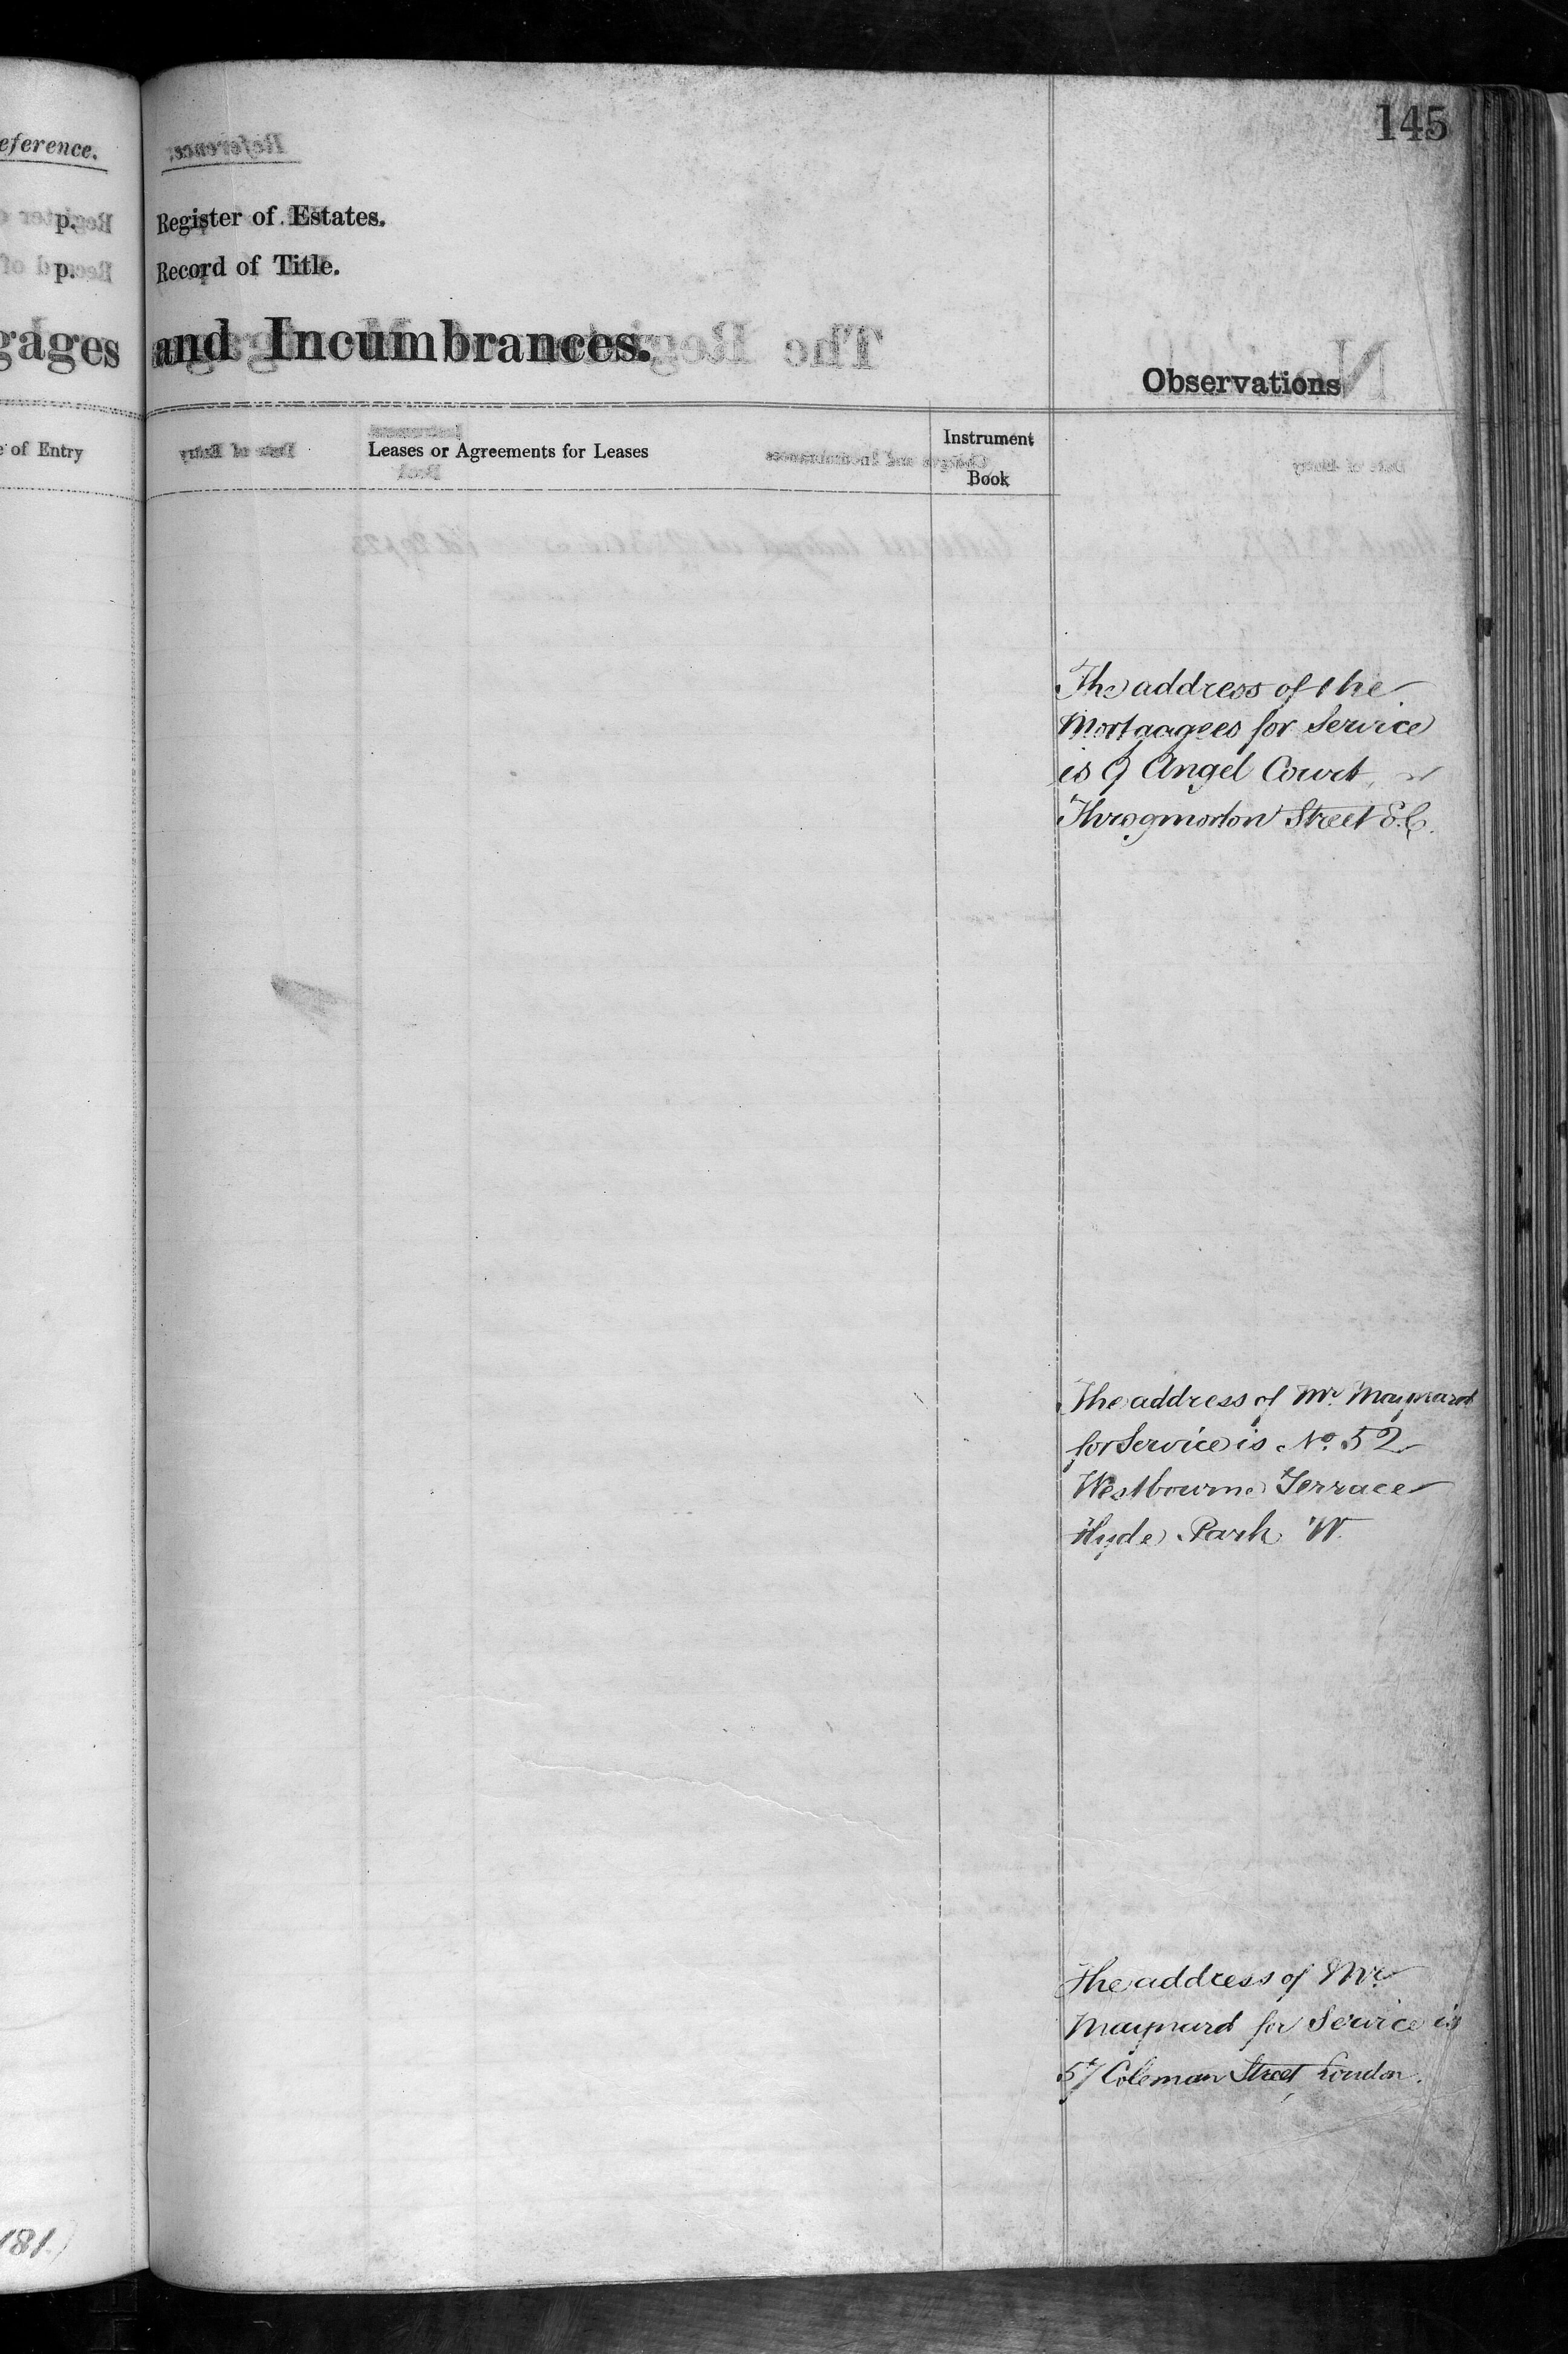 145
eference.
p.
p.
gages
e of Entry
181
Register of Estates.
Record of Title.
and Incumbrances.
Observations
Leases or Agreements for Leases
Instrument
Book
The address of the
Mortgagees for Service
is 9 Angel Court
Throgmorton Street E.C.
The address of Mr. Maynard
for Service is No. 52
Westbourne Terrace
Hyde Park W.
The address of Mr.
Maynard for Service is
57 Coleman Street London.